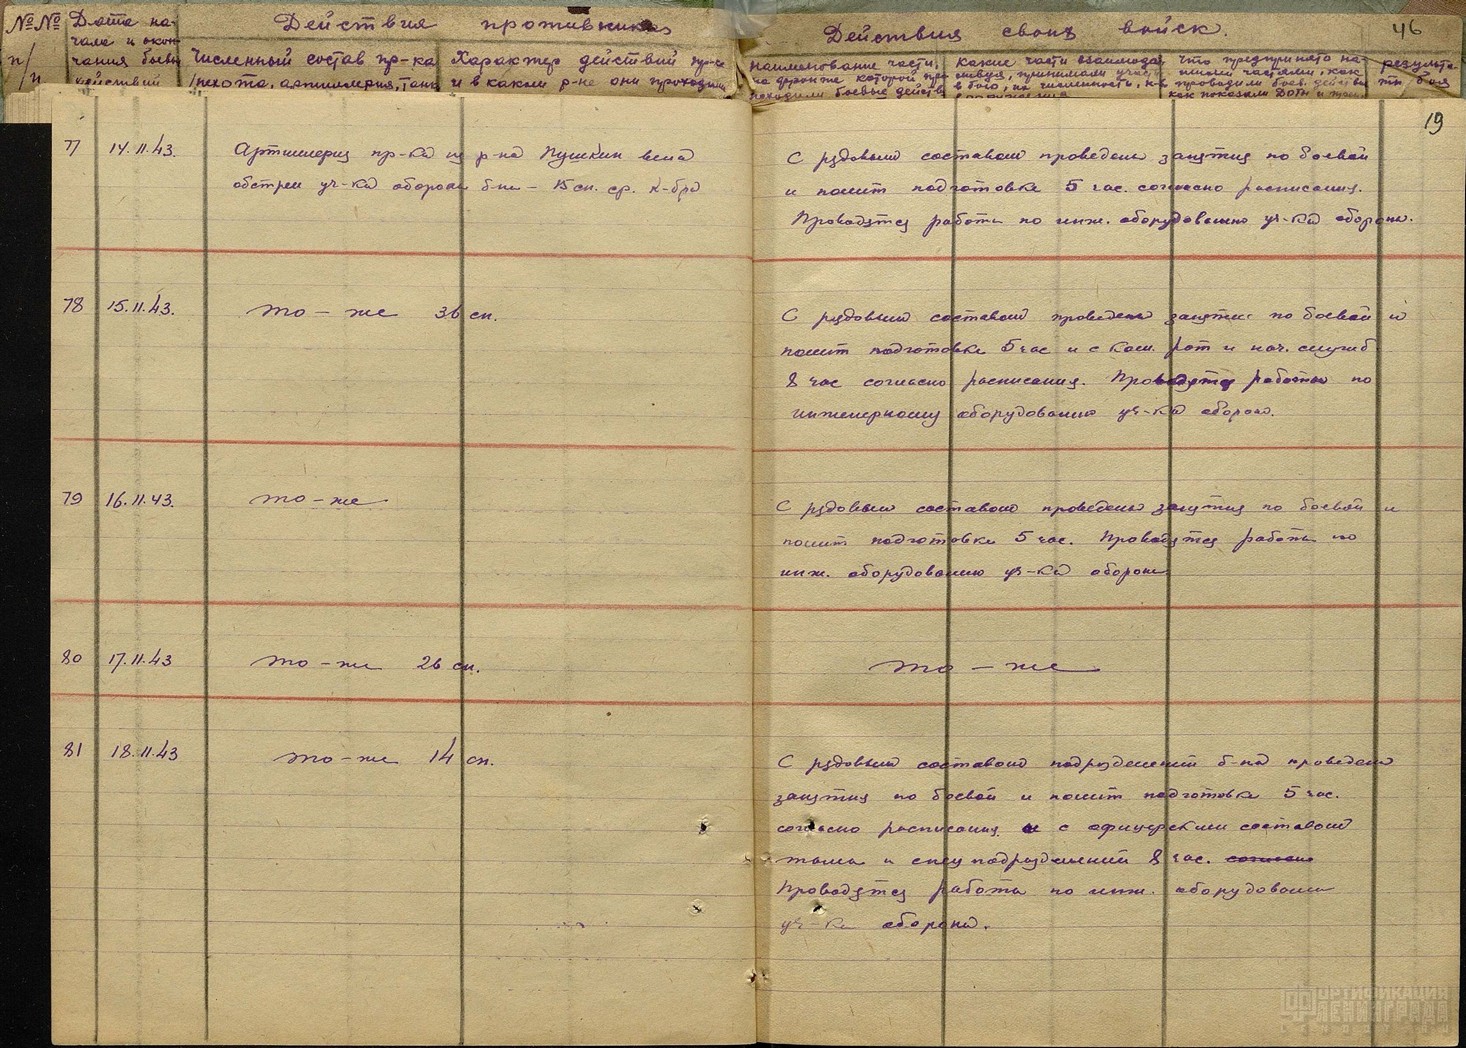 №№ п/п
Дата на-
чала и окон-
чания боев.
действий
Действия противника
Численный состав пр-ка
/пехота, артиллерия, танк
Характер действий пр-ка
и в каком р-не они проходили
Действия своих войск.
46
наименование части,
на фронте которой про-
походили боевые действ
какие части взаимодей-
ствуя, принимали участ.
в бою, их численность,
что предпринято на-
шими частями, как
проводили боев. действ
как показали ДОТы и
результа-
ты боя
19
77
14.11.43.
Артиллерия пр-ка из р-на Пушкин вела
обстрел уч-ка обороны б-на – 15 сн. ср. к-бра
С рядовым составом проведены занятия по боевой
и полит подготовке 5 час. согласно расписания.
Проводятся работы по инж. оборудованию уч-ка обороны.
78
15.11.43.
то – же 36 сн.
С рядовым составом проведены занятия по боевой и
полит подготовке 5 час и с ком. рот и нач. служб
8 час согласно расписания. Проводятся работы по
инженерному оборудованию уч-ка обороны.
79
16.11.43.
то – же
С рядовым составом проведены занятия по боевой и
полит подготовке 5 час. Проводятся работы по
инж. оборудованию уч-ка обороны
80
17.11.43
то – же 26 сн.
то – же
81
18.11.43
то – же 14 сн.
С рядовым составом подразделений б-на проведены
занятия по боевой и полит подготовке 5 час.
согласно расписания и с офицерским составом
и спец подразделений 8 час. согласно
Проводятся работы по инж. оборудованию
уч-ка обороны.
ФОРТИФИКАЦИЯ
ЛЕНИНГРАДА